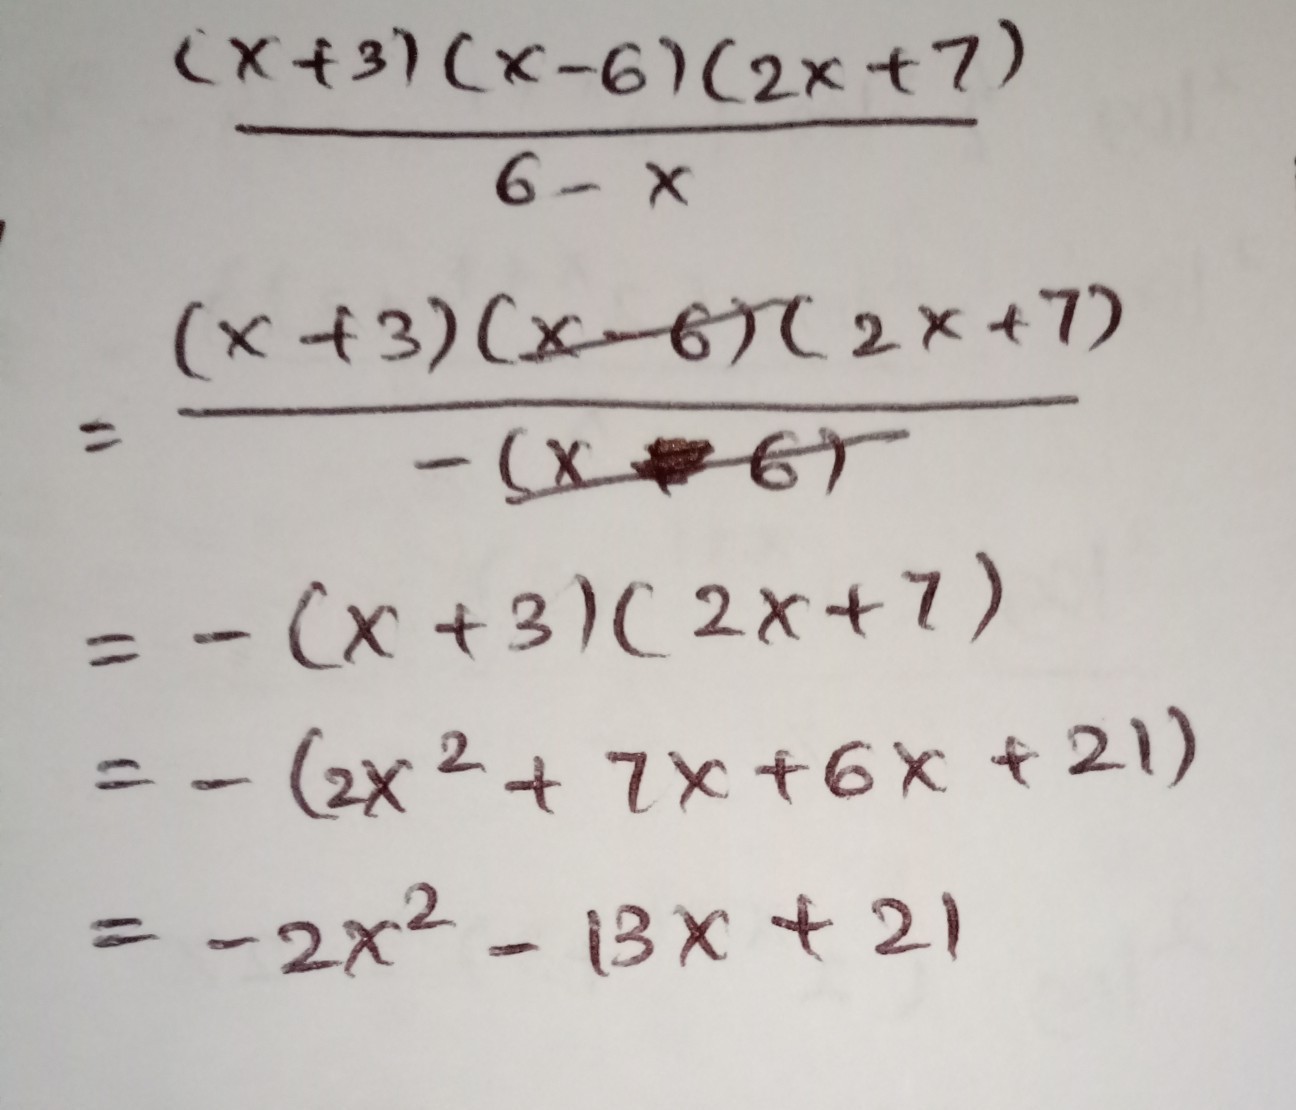 (x+3)(x-6)(2x+7)
6-x
= (x+3)(x-6)(2x+7)
-(x-6)
= -(x+3)(2x+7)
= -(2x²+7x+6x+21)
= -2x²-13x+21